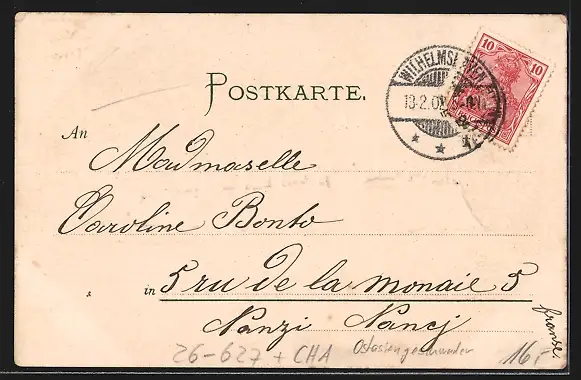 POSTKARTE.
10 10
WILHELMSHAVEN
13.2.02
An
Madmaselle
Caroline Bonto
in 5 ru de la monaie 5
Nanzi Nancj
franse
26-627 + CHA Ostasiengeschwader 16,-